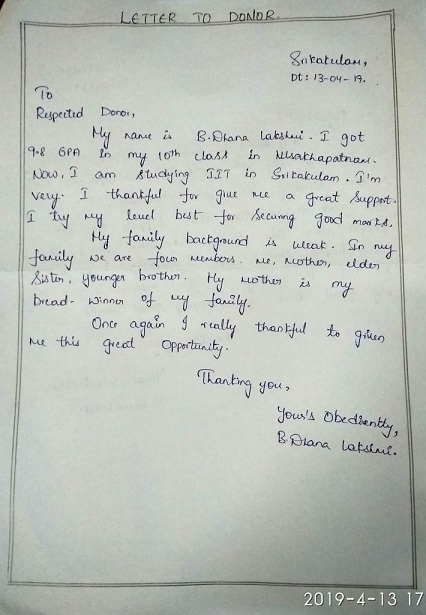 LETTER TO DONOR.
Srikakulam,
Dt: 13-04-19.
To
Respected Donor,
My name is B.Dhana Lakshmi. I got
9.8 GPA in my 10th class in Visakhapatnam.
Now, I am studying IIT in Srikakulam. I'm
very. I thankful for give me a great support.
I try my level best for securing good marks.
My family background is weak. In my
family we are four members. Me, Mother, elder
Sister, younger brother. My Mother is my
bread-winner of my family.
Once again I really thankful to given
me this great opportunity.
Thanking you,
Your's Obediently,
B.Dhana Lakshmi.
2019-4-13 17